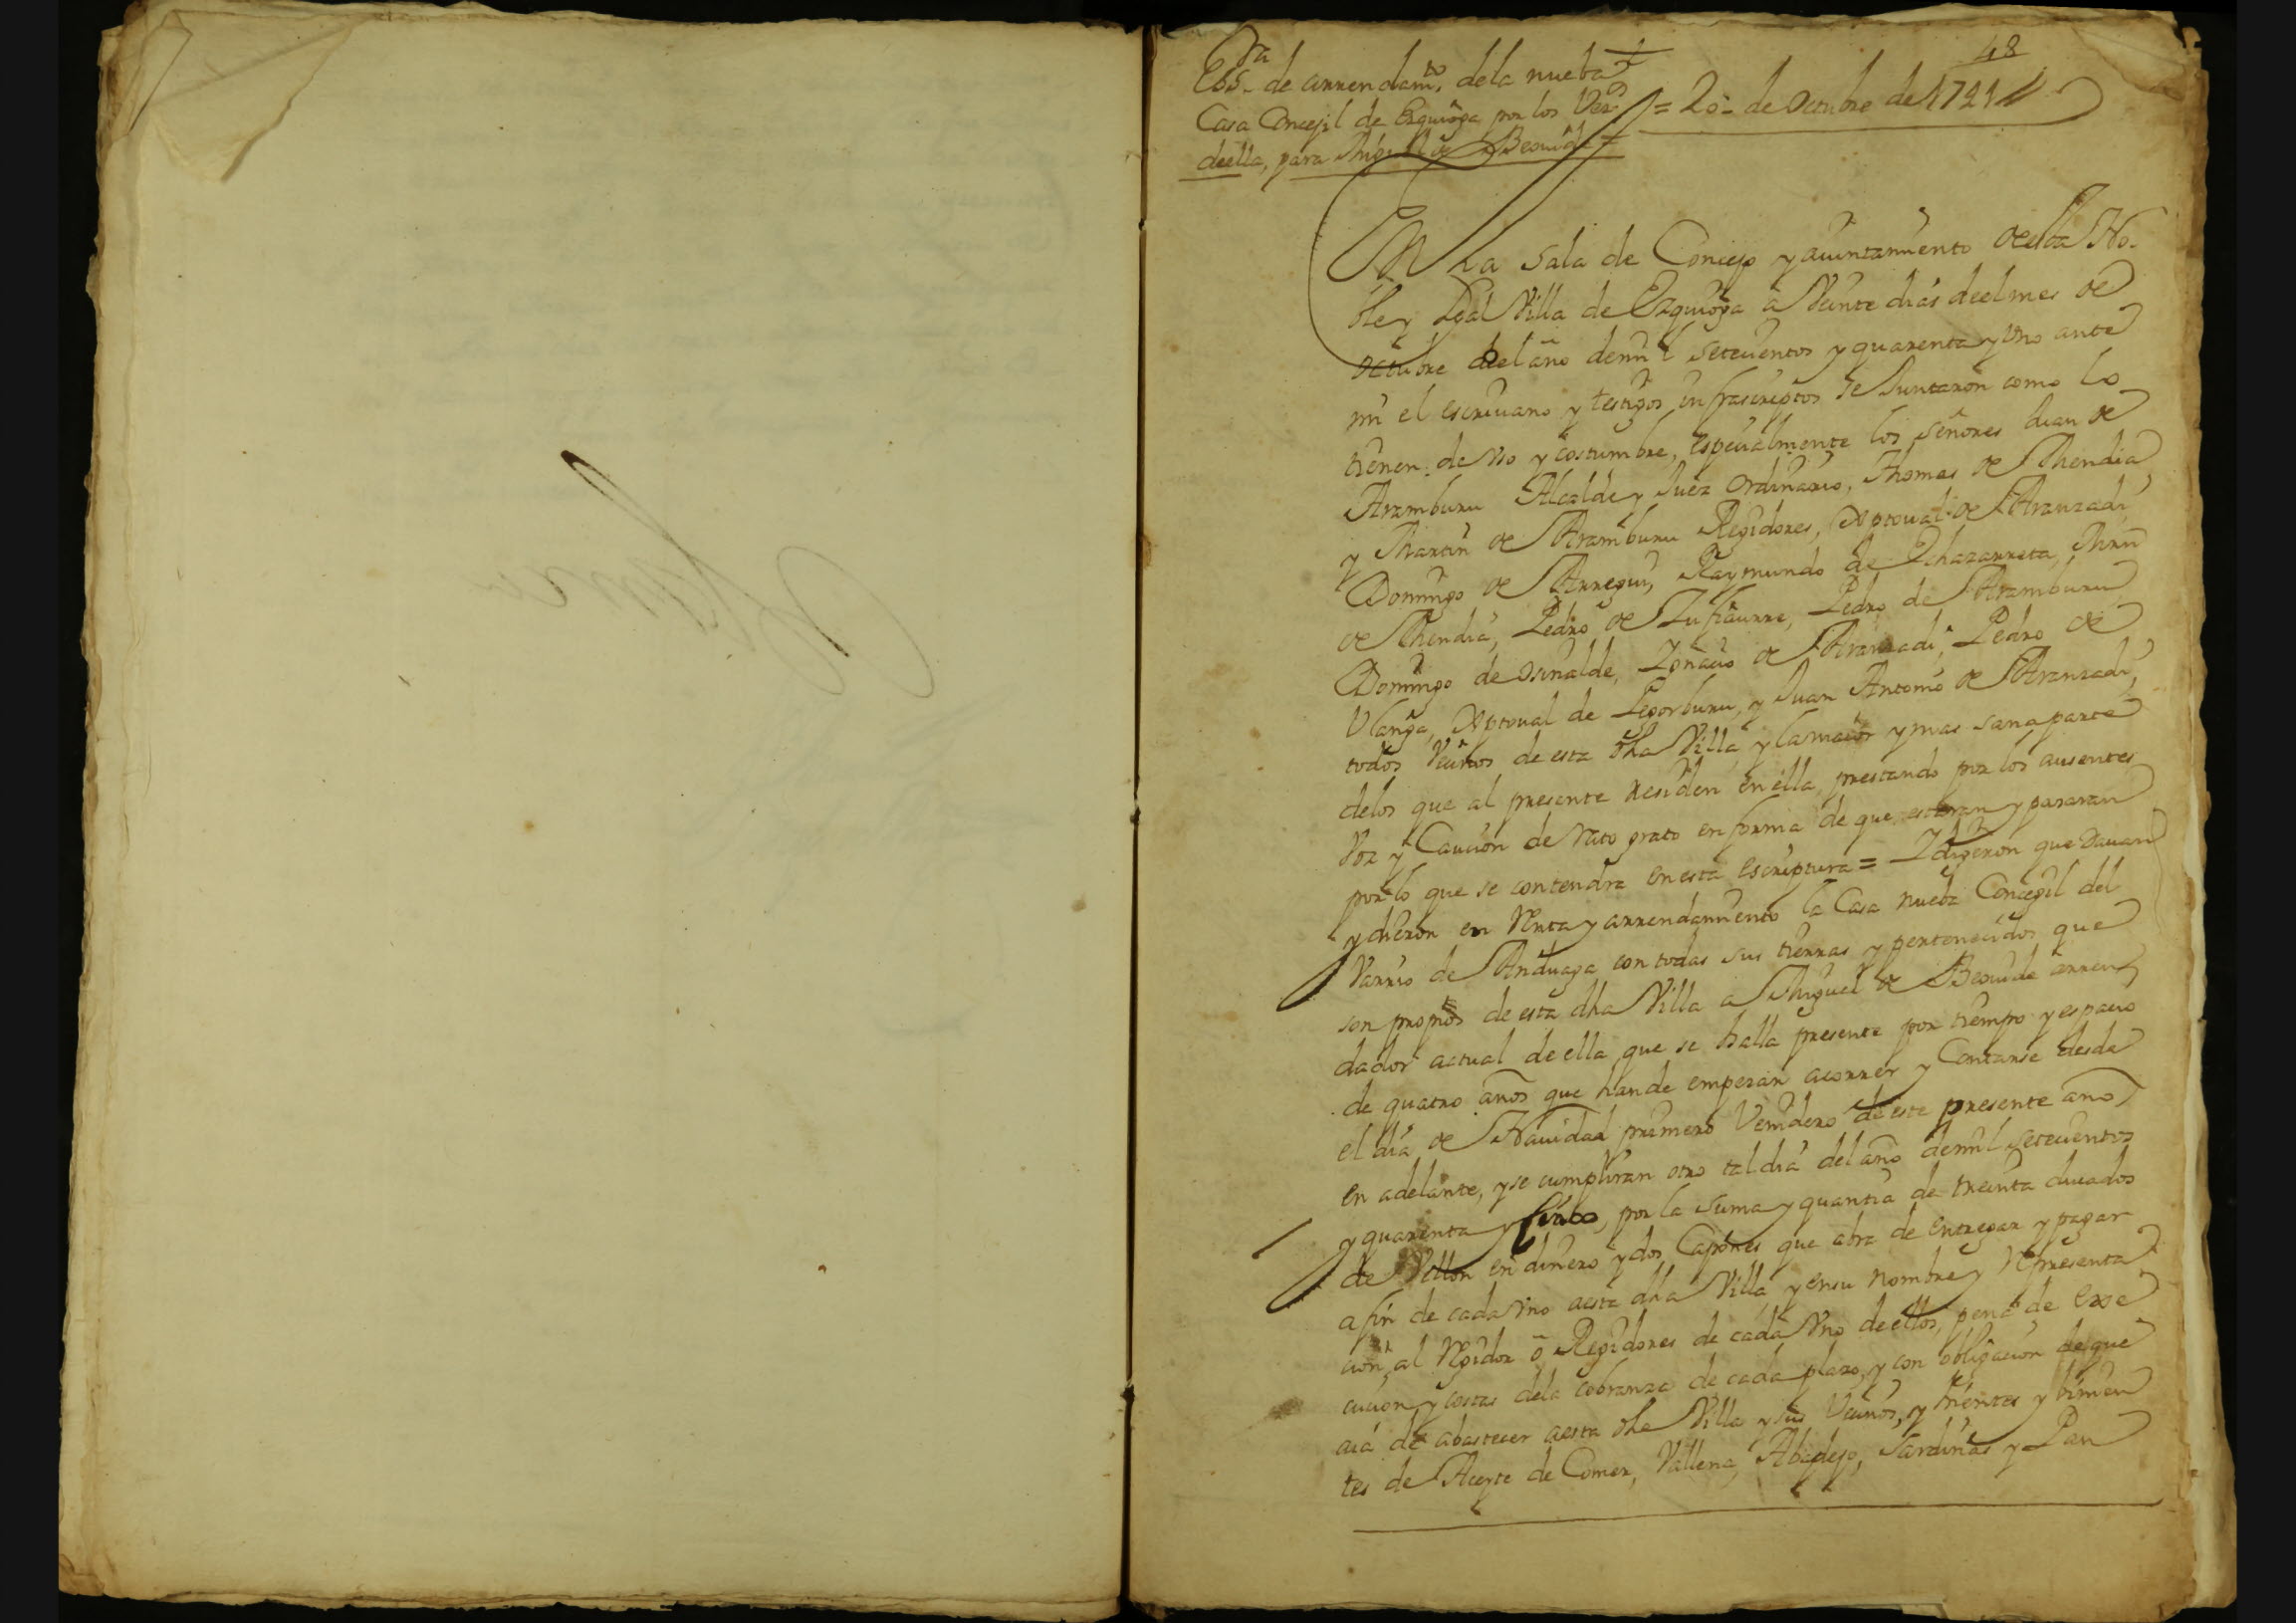 48
Ess.ra de arrendam.to dela nueba
Casa Concejil de Ezquioga por los Vez.s = 20 - de Octubre de 1741
deella, para Miguel de Beguide =
En La Sala de Concejo y aiuntamiento de esta No-
ble y Leal Villa de Ezquioga a Veinte dias deel mes de
octubre deel año demil setecientos y quarenta y Uno ante
mi el escriuano y testigos infrascriptos se Juntaron como lo
tienen de Uso y costumbre, espeçialmente los señores Juan de
Aramburu Alcalde y Juez ordinario, Thomas de Mendia
y Martin de Aramburu Regidores, Xptoual de Aranzadi
Domingo de Arregui, Raymundo de Echazarreta, Mrn
de Mendia, Pedro de Zufiaurre, Pedro de Aramburu
Domingo de osinalde, Ignacio de Aranzadi, Pedro de
Ulanga, Xptoual de Legorburu, y Juan Antonio de Aranzadi,
todos Veçinos de esta dha Villa, y la maior y mas sana parte
delos que al presente residen en ella, prestando por los ausentes
Voz y Cauçion de rato grato en forma de que estaran y pasaran
por lo que se contendra en esta escriptura = I digeron que Dauan
y dieron en Renta y arrendamiento la Casa nueba Concegil del
Varrio de Anduaga con todas sus tierras y perteneçidos que
son propios de esta dha Villa a Miguel de Beguide arren
dador actual de ella que se halla presente por tiempo y espaçio
de quatro años que han de empezar acorrer y Contarse desde
el dia de Nauidad primero Venidero de este presente año
en adelante, y se cumpliran otro tal dia del año demil seteçientos
y quarenta y cinco, por la suma y quantia de treinta ducados
de Vellon en dinero y dos Capones que abra de entregar y pagar
a fin de cada Uno aesta dha Villa y ensu nombre y representa
cion al Regidor o Regidores de cada Uno deellos, pena de exe
cucion y costas dela cobranza de cada plazo, y con obligacion deque
aia de abastecer aesta dha Villa y sus Veçinos, y hientes y binien
tes de Aceyte de Comer, Vallena, Abadejo, Sardinas y Pan